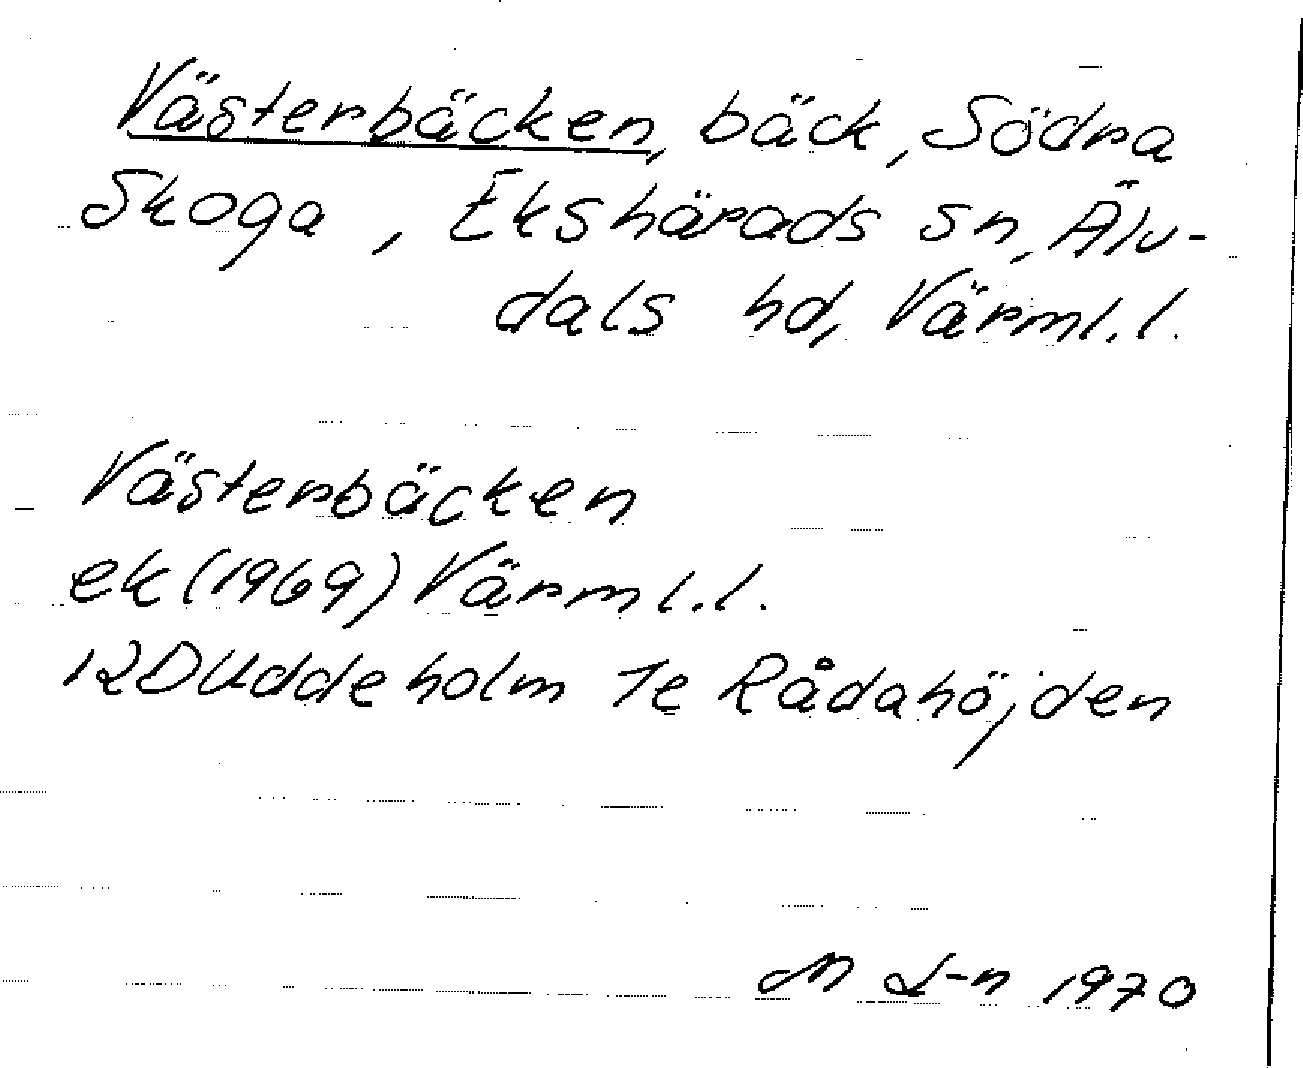 Västerbäcken, bäck, Södra
Skoga, Ekshärads sn, Älv-
dals hd, Värml. l.
Västerbäcken
ek (1969) Värml. l.
12D Uddeholm 1e Rådahöjden
M L-n 1970